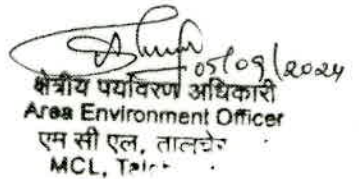 05/09/2024
क्षेत्रीय पर्यावरण अधिकारी
Area Environment Officer
एम सी एल, तालचेर
MCL,